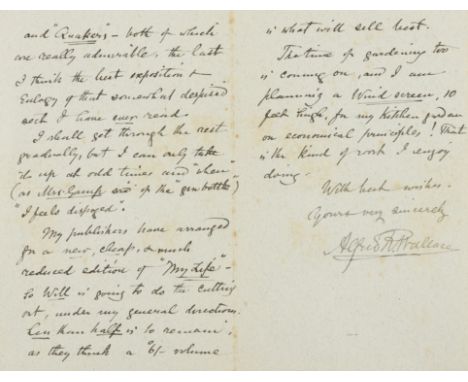 and "Quakers", – both of which
are really admirable, the last
I think the best exposition &
Eulogy of that somewhat despised
sect I have ever read.
I shall get through the rest
gradually, but I can only take
'em up at odd times and "when"
(as Mrs. Gamp said of the "gin bottle")
"I feels disposed".
My publishers have arranged
for a new, cheap, & much
reduced edition of "My Life" –
So Will is going to do the cutting
out, under my general directions.
Less than half is to remain,
as they think a 6/- volume
is what will sell best.
The time of gardening too
is coming on, and I am
planning a Wind screen, 10
feet high, for my kitchen garden
on economical principles! That
is the kind of work I enjoy
doing.
With best wishes.
Yours very sincerely
Alfred R. Wallace